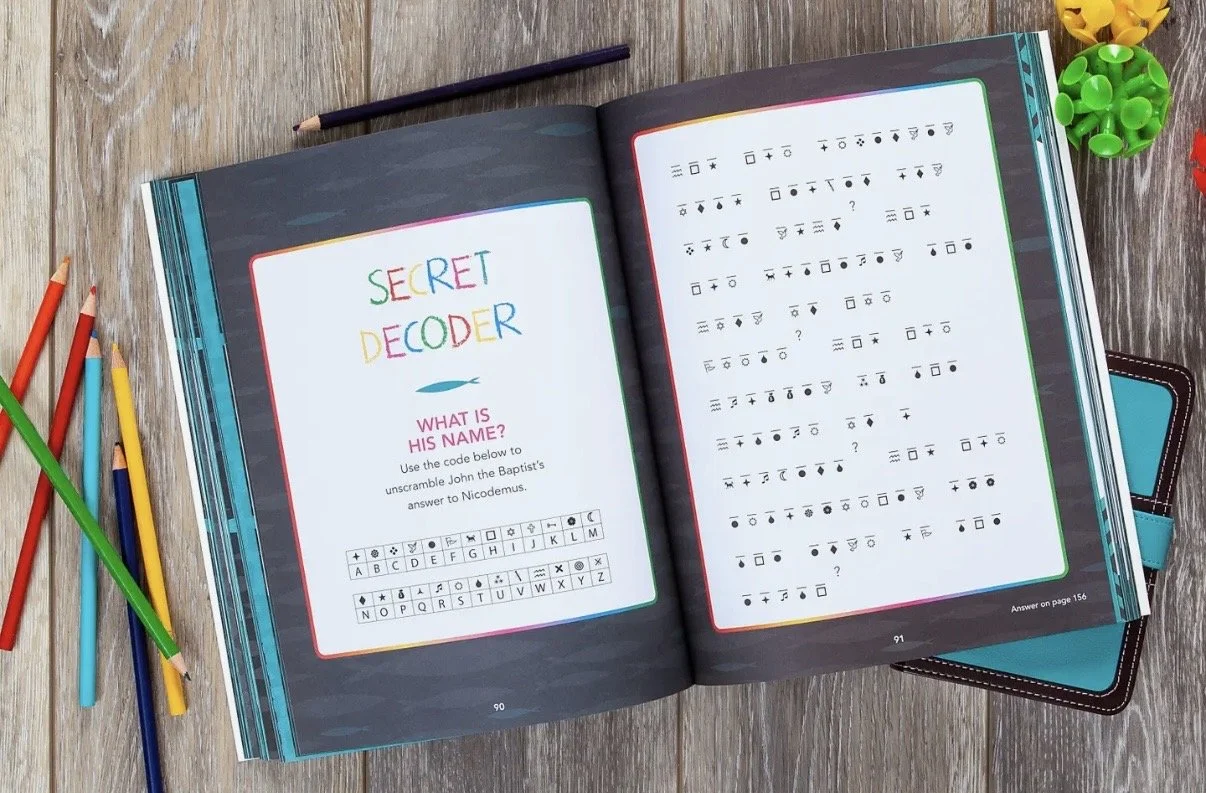 SECRET
DECODER
WHAT IS
HIS NAME?
Use the code below to
unscramble John the Baptist's
answer to Nicodemus.
A B C D E F G H I J K L M
N O P Q R S T U V W X Y Z
90
?
?
?
?
Answer on page 156
91